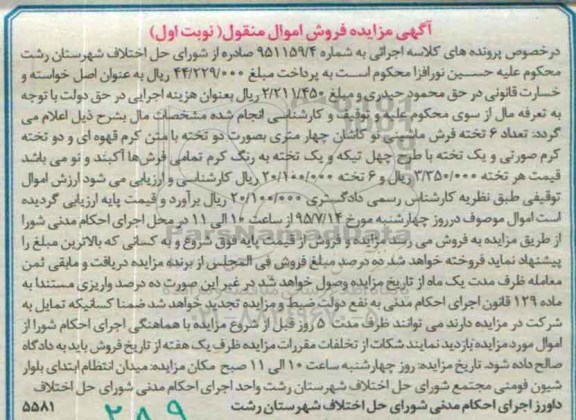 آگهی مزایده فروش اموال منقول( نوبت اول)
درخصوص پرونده های کلاسه اجرائی به شماره ۹۵۱۱۵۹/۴ صادره از شورای حل اختلاف شهرستان رشت
محکوم علیه حسین نورافزا محکوم است به پرداخت مبلغ ۴۴/۲۲۹/۰۰۰ ریال به عنوان اصل خواسته و
خسارت قانونی در حق محمود حیدری و مبلغ ۲/۲۱۱/۴۵۰ ریال بعنوان هزینه اجرایی در حق دولت با توجه
به تعرفه مال از سوی محکوم علیه و توقیف و کارشناسی انجام شده مشخصات مال بشرح ذیل اعلام می
گردد: تعداد ۶ تخته فرش ماشینی نو کاشان چهار متری بصورت دو تخته با متن کرم قهوه ای و دو تخته
کرم صورتی و یک تخته با طرح چهل تیکه و یک تخته به رنگ کرم تمامی فرش ها آکبند و نو می باشد
قیمت هر تخته ۳/۳۵۰/۰۰۰ ریال و ۶ تخته ۲۰/۱۰۰/۰۰۰ ریال کارشناسی و ارزیابی می شود ارزش اموال
توقیفی طبق نظریه کارشناس رسمی دادگستری ۲۰/۱۰۰/۰۰۰ ریال برآورد و قیمت پایه ارزیابی گردیده
است اموال موصوف درروز چهارشنبه مورخ ۹۵/۷/۱۴ از ساعت ۱۰ الی ۱۱ در محل اجرای احکام مدنی شورا
از طریق مزایده به فروش می رسد مزایده و فروش از قیمت پایه فوق شروع و به کسانی که بالاترین مبلغ را
پیشنهاد نماید فروخته خواهد شد ده درصد مبلغ فروش فی المجلس از برنده مزایده دریافت و مابقی ثمن
معامله ظرف مدت یک ماه از تاریخ مزایده وصول خواهد شد در غیر این صورت ده درصد واریزی مستندا به
ماده ۱۲۹ قانون اجرای احکام مدنی به نفع دولت ضبط و مزایده تجدید خواهد شد ضمنا کسانیکه تمایل به
شرکت در مزایده دارند می توانند ظرف مدت ۵ روز قبل از شروع مزایده با هماهنگی اجرای احکام شورا از
اموال مورد مزایده بازدید نمایند شکات از تخلفات مقررات مزایده ظرف یک هفته از تاریخ فروش باید به دادگاه
صالح داده شود. تاریخ مزایده: روز چهارشنبه ساعت ۱۰ الی ۱۱ صبح مکان مزایده: میدان انتظام ابتدای بلوار
شیون فومنی مجتمع شورای حل اختلاف شهرستان رشت واحد اجرای احکام مدنی شورای حل اختلاف
داورز اجرای احکام مدنی شورای حل اختلاف شهرستان رشت ۵۵۸۱
۲۸۹
ParsNamadData